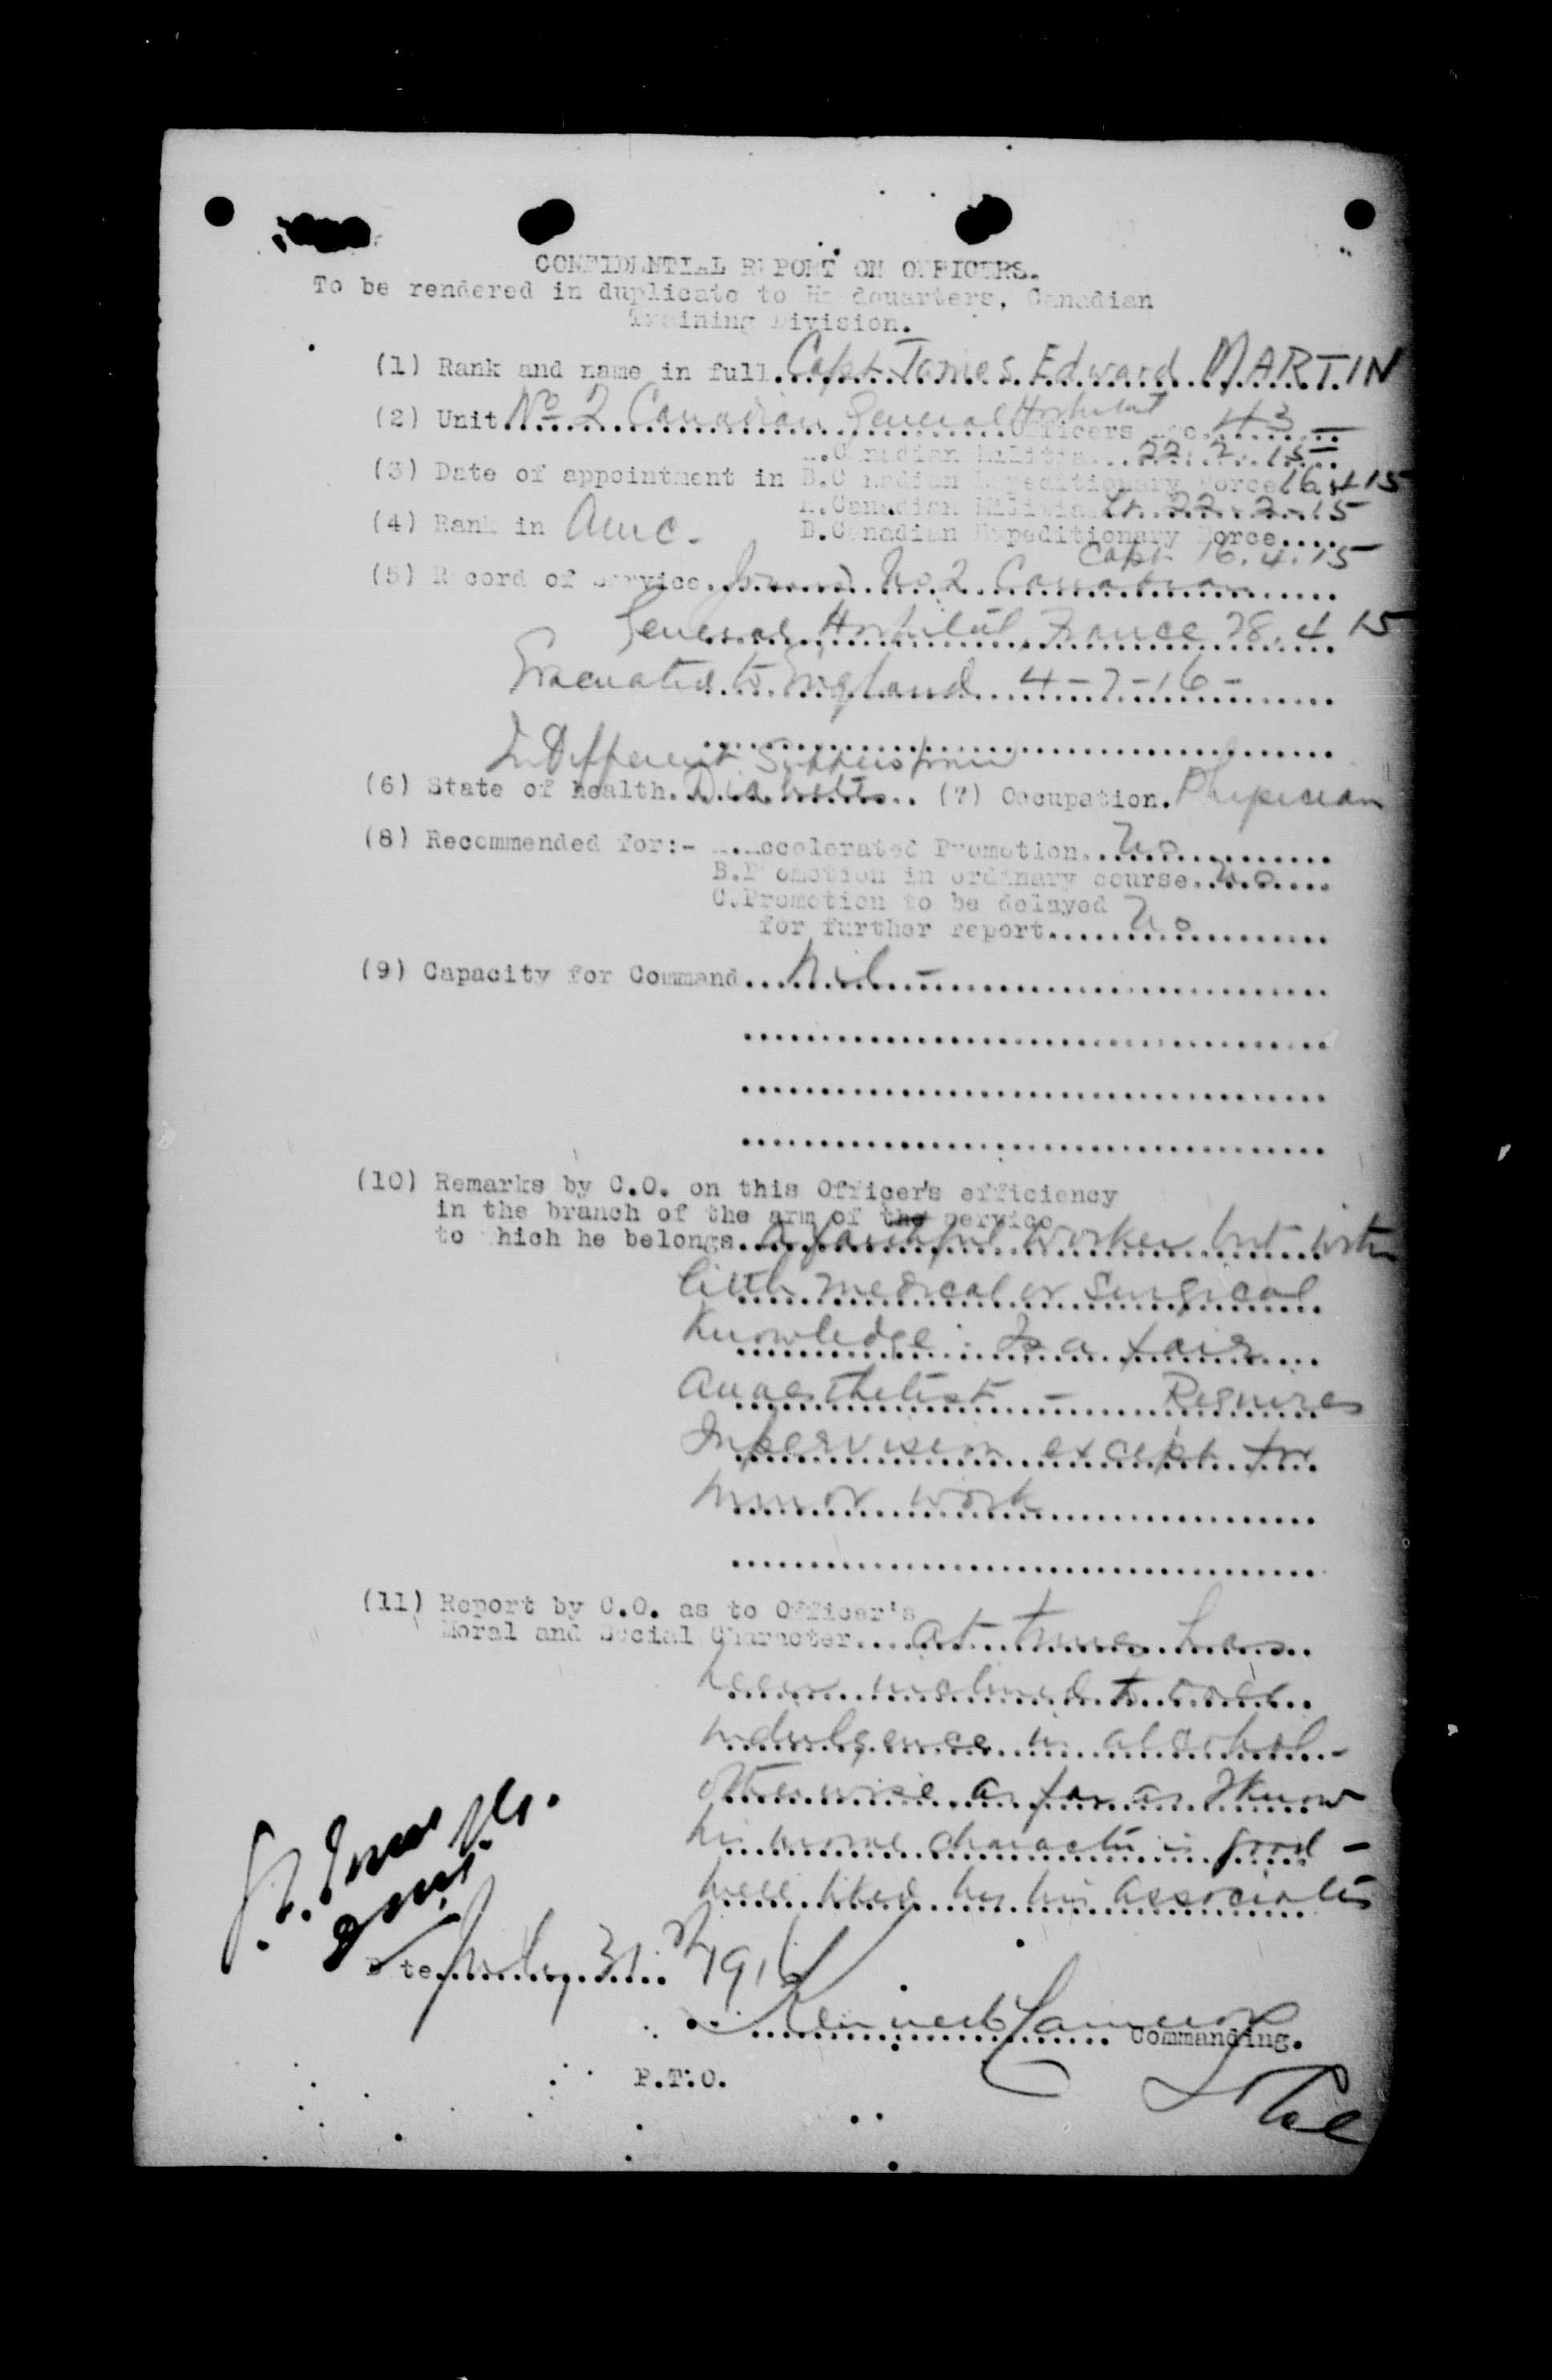 CONFIDENTIAL REPORT ON OFFICERS.
To be rendered in duplicate to Headquarters, Canadian
Training Division.
(1) Rank and name in full. Capt. James Edward MARTIN
(2) Unit. No 2 Canadian General Hospital Officers Age. 43
A. Canadian Militia... 22.2.15
(3) Date of appointment in B. Canadian Expeditionary Force. 16.4.15
A. Canadian Militia Lt. 22.2.15
(4) Rank in AMC. B. Canadian Expeditionary Force....
Capt 16.4.15
(5) Record of Service. Joined No 2 Canadian
General Hospital France 28.4 15
Evacuated to England 4-7-16-
Indifferent
(6) State of health. Diabetes (7) Occupation. Physician
(8) Recommended for:- A. Accelerated Promotion. No
B. Promotion in ordinary course. No
C. Promotion to be delayed
for further report. No
(9) Capacity for Command. Nil -
(10) Remarks by C.O. on this Officer's efficiency
in the branch of the arm of the service
to which he belongs. A faithful worker but with
little medical or surgical
knowledge. Is a fair
anaesthetist - Requires
supervision except for
minor work
(11) Report by C.O. as to Officer's
Moral and Social Character. at times has
been inclined to over
indulgence in alcohol -
otherwise as far as I know
his moral character is good -
well liked by his associates
Date July 31st 1916
Kenneth Cameron Commanding.
P.T.O.